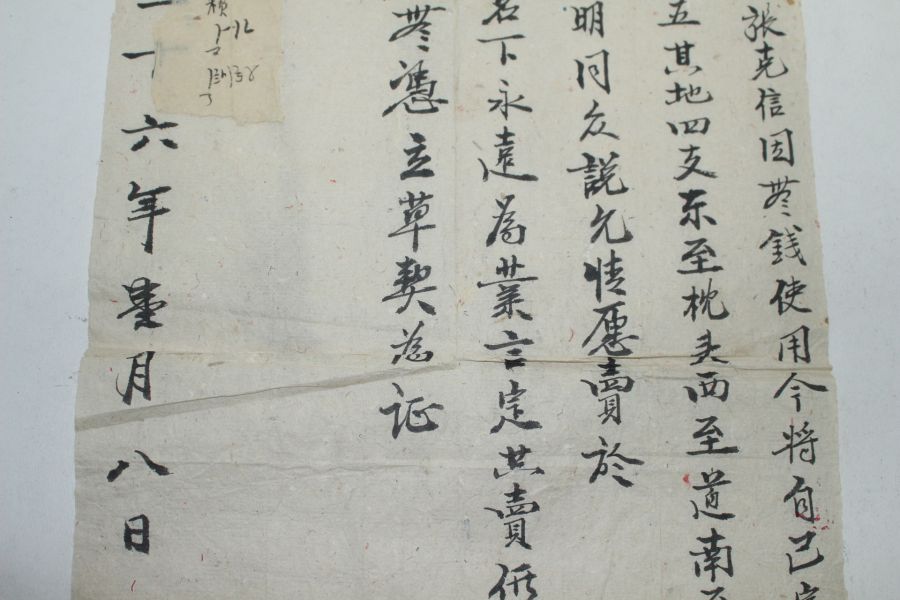 張克信因無錢使用今將自己
五其地四支东至枕头西至道南至
明同众説允情愿賣於
名下永遠為業言定共賣價
無憑立草契為証
十六年壹月八日